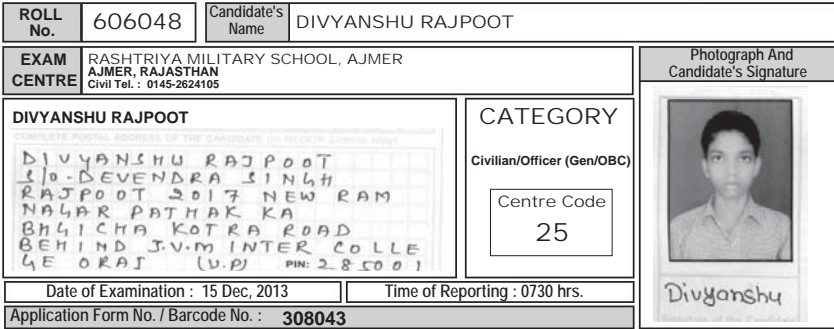 ROLL No. 606048 Candidate's Name DIVYANSHU RAJPOOT
EXAM CENTRE RASHTRIYA MILITARY SCHOOL, AJMER
AJMER, RAJASTHAN
Civil Tel. : 0145-2624105
Photograph And
Candidate's Signature
DIVYANSHU RAJPOOT
COMPLETE POSTAL ADDRESS OF THE CANDIDATE (in BLOCK Letters only)
DIVYANSHU RAJPOOT
S/O-DEVENDRA SINGH
RAJPOOT 2017 NEW RAM
NAGAR PATHAK KA
BHGICHA KOTRA ROAD
BEHIND J.V.M INTER COLLE
GE ORAI (U.P) PIN: 285001
CATEGORY
Civilian/Officer (Gen/OBC)
Centre Code
25
Divyanshu
Signature of the Candidate
Date of Examination : 15 Dec, 2013 Time of Reporting : 0730 hrs.
Application Form No. / Barcode No. : 308043